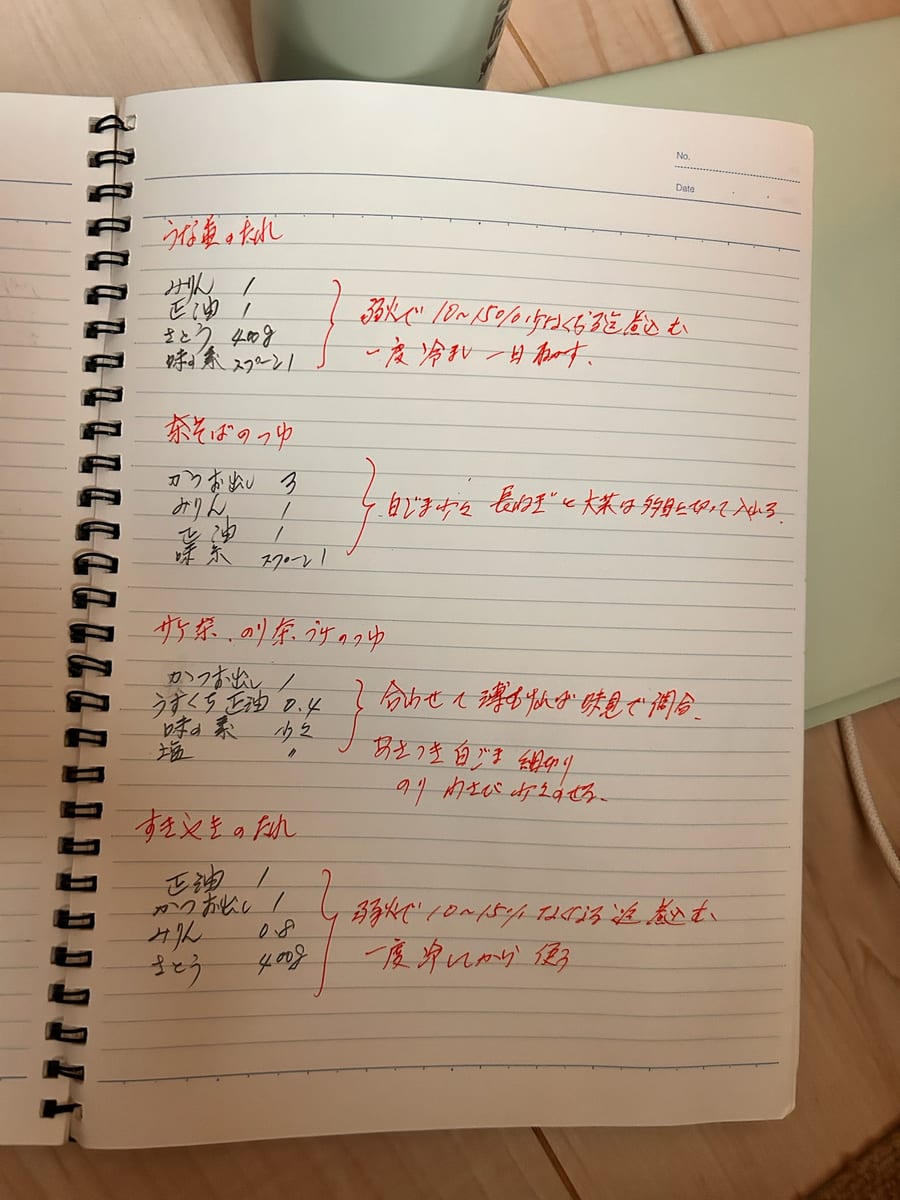 No.
Date
うな重のたれ
みりん 1
正油 1
さとう 400g
味の素 スプーン1
弱火で10～15%少なくなる迄煮込む
一度冷まし 一日ねかす.
茶そばのつゆ
かつお出し 3
みりん 1
正油 1
味素 スプーン1
白ごま少々 長ねぎと大葉は多目に切って入れる.
サケ茶、のり茶づけのつゆ
かつお出し 1
うすくち正油 0.4
味の素 少々
塩 〃
合わせて薄ければ味見で調合.
あさつき 白ごま 細切り
のり わさび 少々のせる.
すきやきのたれ
正油 1
かつお出し 1
みりん 0.8
さとう 400g
弱火で10～15% なくなる迄煮込む、
一度冷してから使う